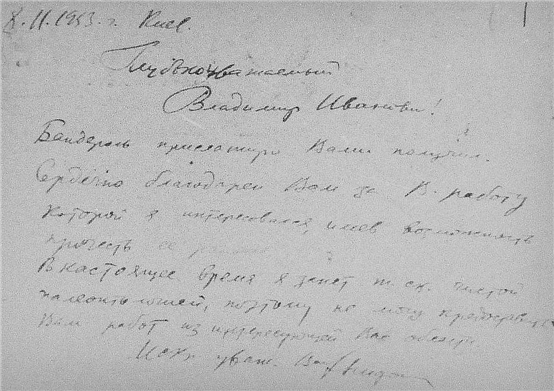 8.II.1953. г. Киев.
Глубокоуважаемый
Владимир Иванович!
Бандероль присланную Вами получил.
Сердечно благодарен Вам за В. работу
которой я интересовался, имев возможность
прочесть ее
В настоящее время я занят т. ск. чистой
поэтому не могу предоставить
Вам работ из интересующей Вас области.
Искр. уваж. Вас